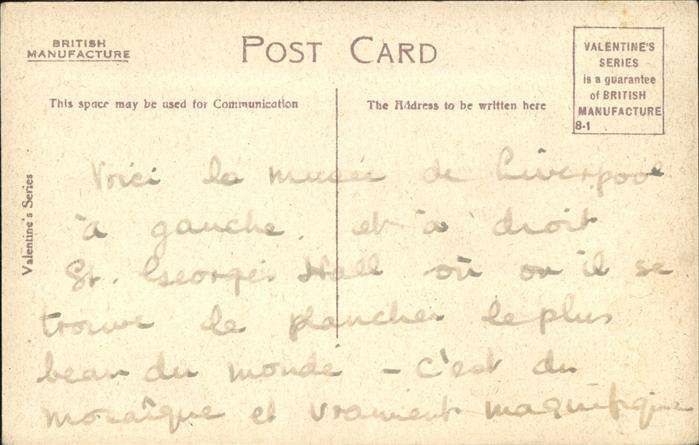 BRITISH
MANUFACTURE
POST CARD
VALENTINE'S
SERIES
is a guarantee
of BRITISH
MANUFACTURE
8-1
This space may be used for Communication
The Address to be written here
Valentine's Series
Voici le musée de Liverpool
à gauche, et à droit
St. George's Hall où on il se
trouve le plancher le plus
beau du monde – c'est du
mosaïque et vraiment magnifique